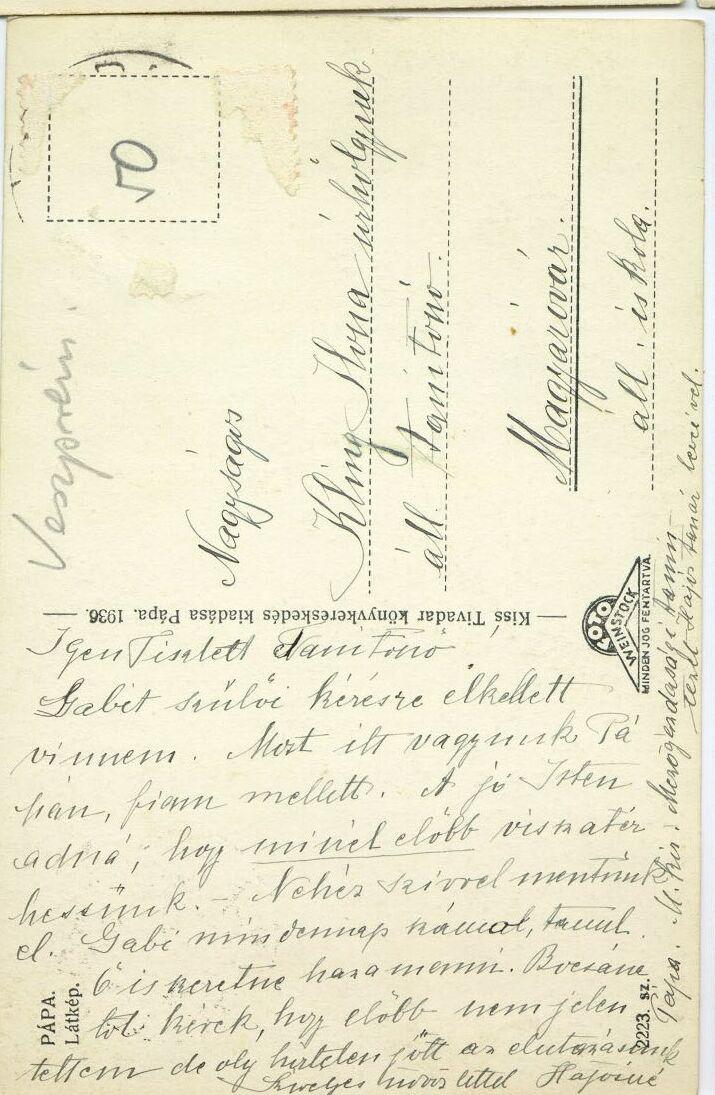 50
Veszprém.
Nagyságos
Kling Ilona úrhölgynek
áll. tanítónő.
Magyaróvár.
áll. iskola.
— Kiss Tivadar könyvkereskedés kiadása Pápa. 1936. —
FOTO
WEINSTOCK
MINDEN JOG FENTARTVA.
Igen Tisztelt Tanítónő
Gabit szülői kérésre elkellett
vinnem. Most itt vagyunk Pá
pán, fiam mellett. A jó Isten
adná, hogy minél előbb visszatér
hessünk. – Nehéz szívvel mentünk
el. Gabi mindennap számol, tanul.
Ő is szeretne haza menni. Bocsána
tot kérek, hogy előbb nem jelen
tettem de oly hirtelen jött az elutazásunk
Szívélyes üdvözlettel Hajósné
Pápa. M. kir. Mezőgazdasági tanin
tézet Hajós tanár
PÁPA.
Látkép.
2223. sz.